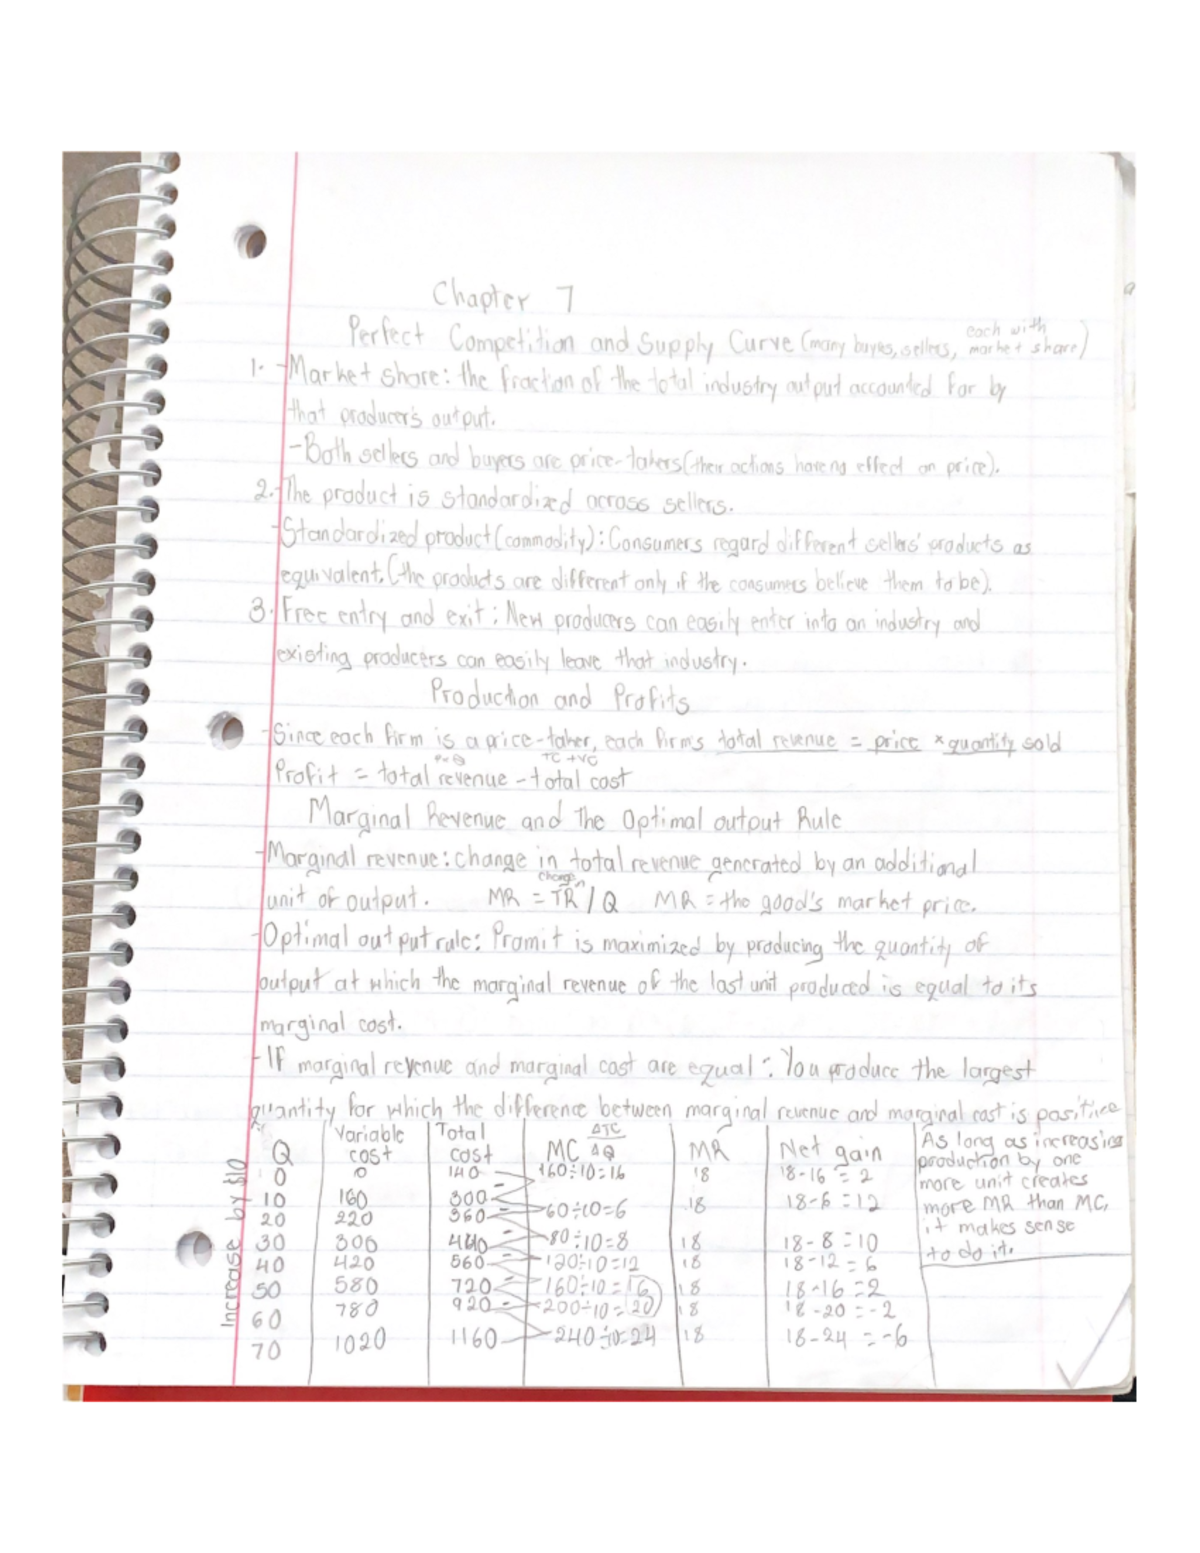 Chapter 7
Perfect Competition and Supply Curve (many buyres, sellers, each with market share)
1. -Market share: the fraction of the total industry output accounted for by
that producer's output.
-Both sellers and buyers are price-takers (their actions have no effect on price).
2. -The product is standardized across sellers.
-Standardized product (commodity): Consumers regard different sellers' products as
equivalent. (the products are different only if the consumers believe them to be).
3. Free entry and exit: New producers can easily enter into an industry and
existing producers can easily leave that industry.
Production and Profits
-Since each firm is a price-taker, each firm's total revenue = price × quantity sold
P×Q TC+VC
Profit = total revenue - total cost
Marginal Revenue and the Optimal output Rule
-Marginal revenue: change in total revenue generated by an additional
change in
unit of output. MR = TR / Q MR = the good's market price.
-Optimal output rule: Promit is maximized by producing the quantity of
output at which the marginal revenue of the last unit produced is equal to its
marginal cost.
-If marginal revenue and marginal cost are equal: You produce the largest
quantity for which the difference between marginal revenue and marginal cost is positive
Q Variable cost Total cost MC ΔTC/ΔQ MR Net gain
0 0 140 160÷10=16 18 18-16=2
10 160 300 60÷10=6 18 18-6=12
20 220 360
30 300 440 80÷10=8 18 18-8=10
40 420 560 120÷10=12 18 18-12=6
50 580 720 160÷10=16 18 18-16=2
60 780 920 200÷10=20 18 18-20=-2
70 1020 1160 240÷10=24 18 18-24=-6
Increase by $10
As long as increasing
production by one
more unit creates
more MR than MC,
it makes sense
to do it.